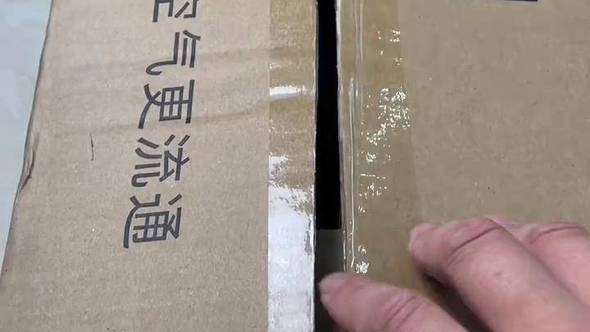 空气更流通